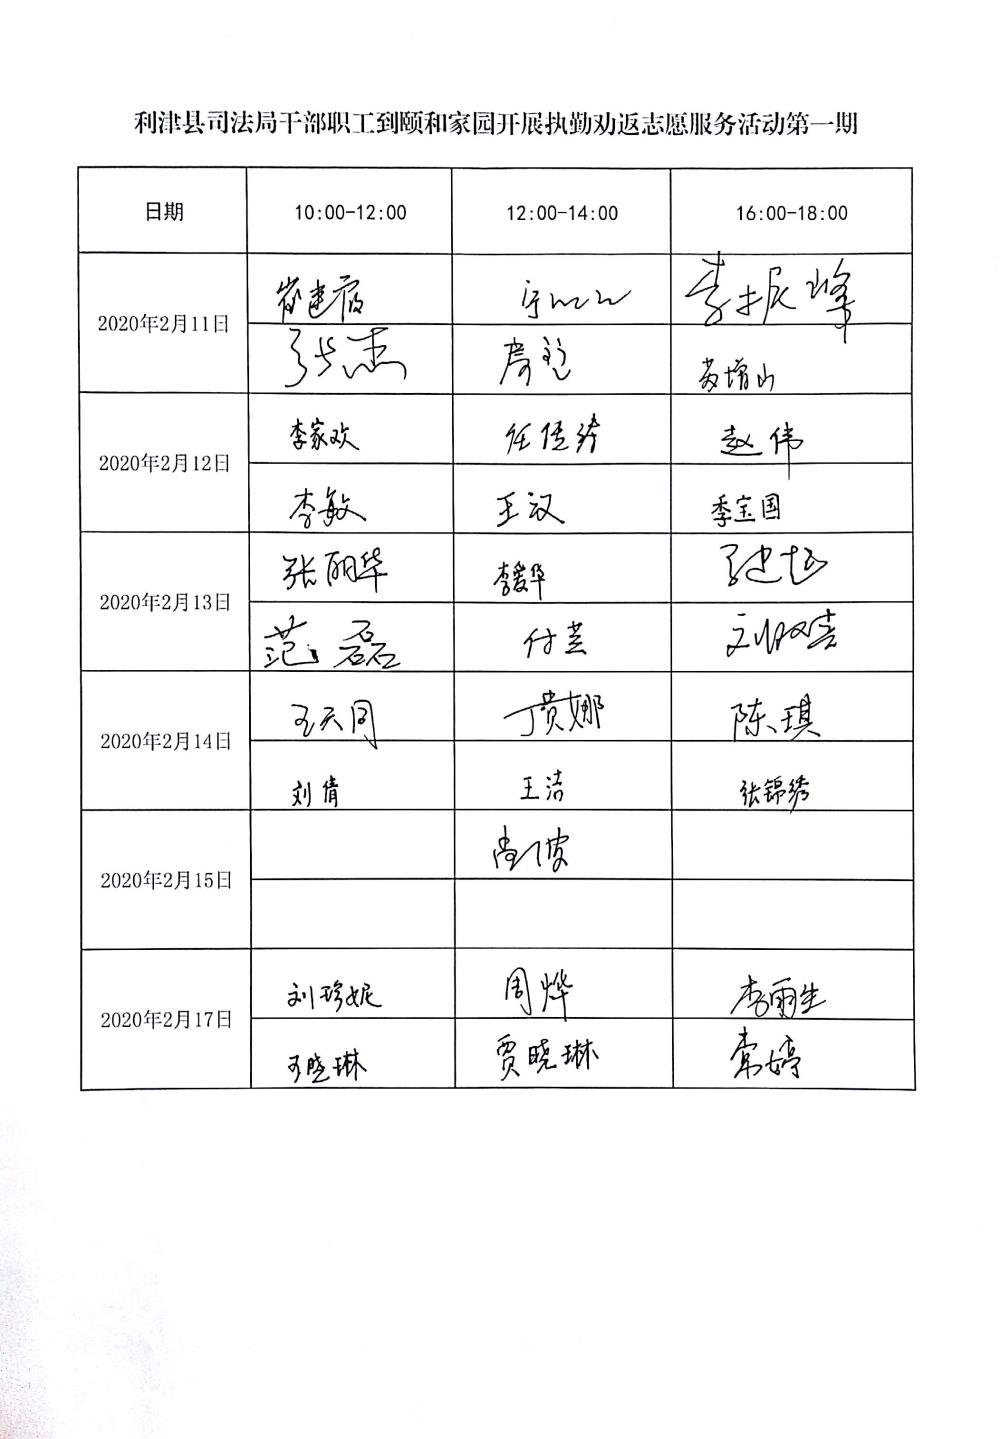 利津县司法局干部职工到颐和家园开展执勤劝返志愿服务活动第一期
日期 10:00-12:00 12:00-14:00 16:00-18:00
2020年2月11日
李振峰
张杰 苏增山
2020年2月12日
李家欢 任佳绮 赵伟
李敏 王汉 季宝国
2020年2月13日
张丽华 李爱华
范磊 付芸 刘双喜
2020年2月14日
王天同 丁贵娜 陈琪
刘倩 王洁 张锦绣
2020年2月15日
2020年2月17日
刘珍妮 周烨 李雨生
王晓琳 贾晓琳 常婷